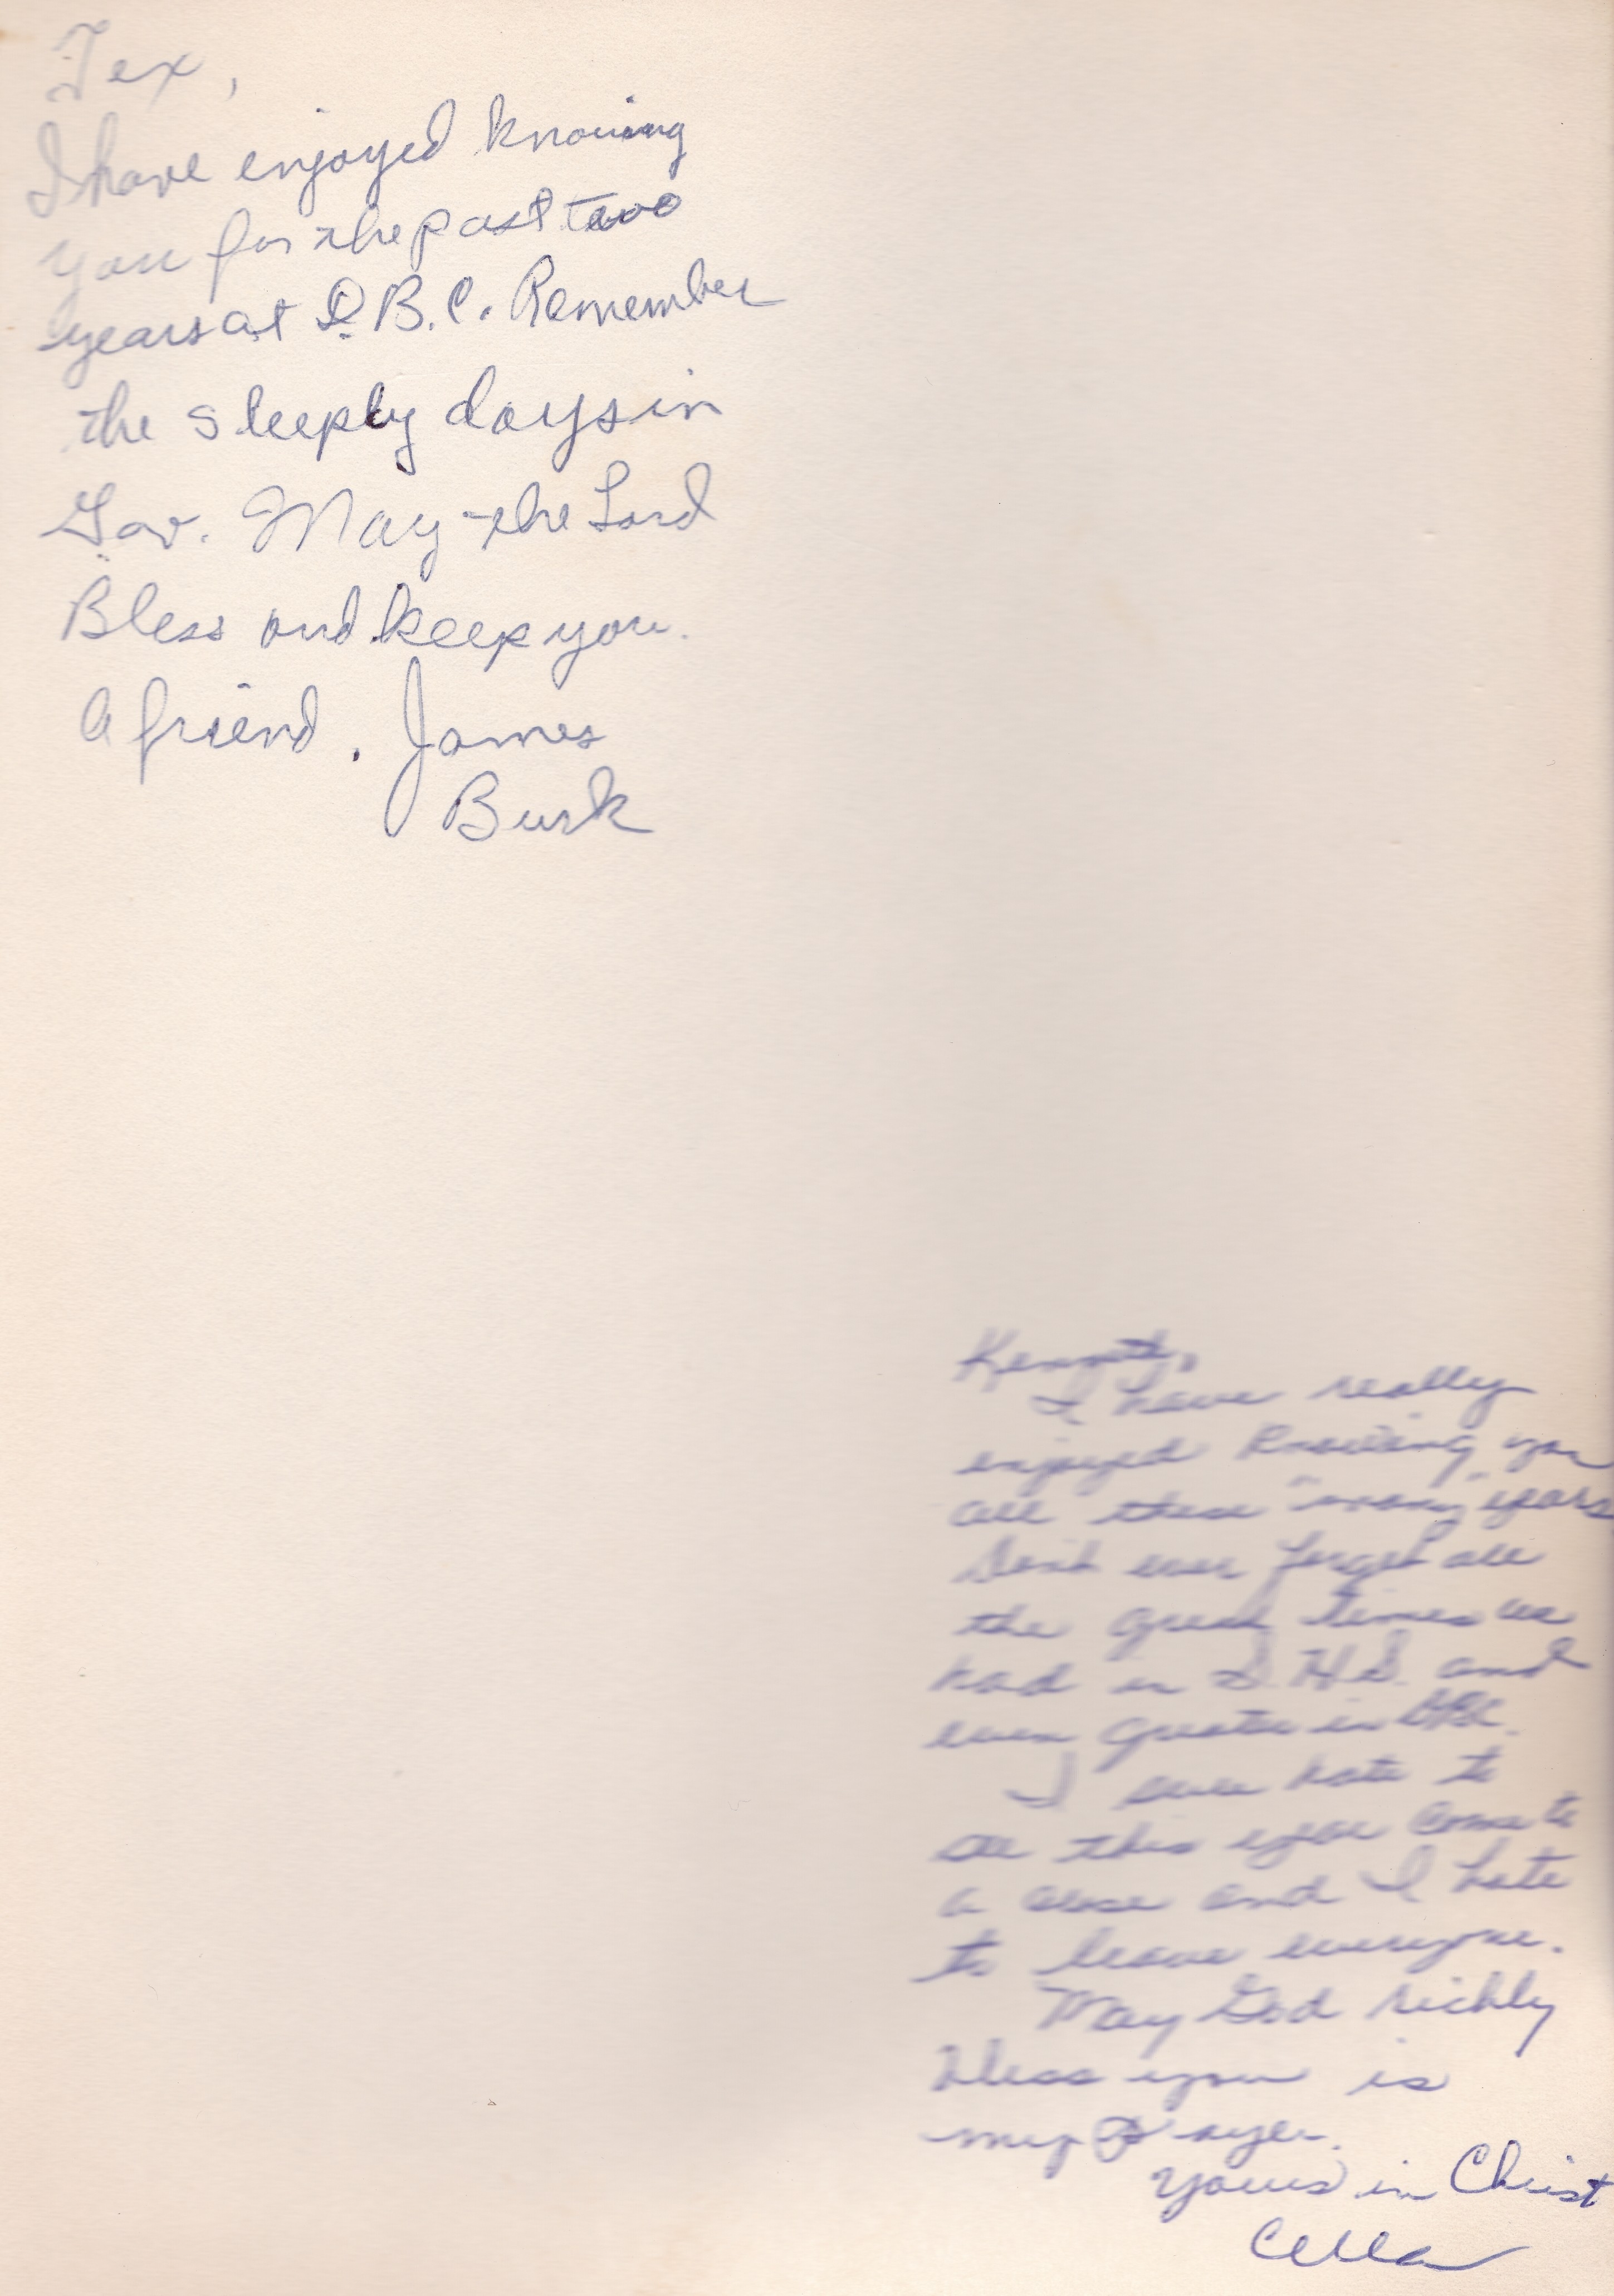 Tex,
I have enjoyed knowing
you for the past two
years at D.B.C. Remember
the sleeply days in
Gov. May the Lord
Bless and keep you.
A friend. James
Burk
Kenneth,
I have really
enjoyed knowing you
all these "many" years
Don't ever forget all
the great times we
had in S.H.S. and
even greater in DBC.
I sure hate to
see this year come to
a close and I hate
to leave everyone.
May God richly
bless you is
my Prayer.
Yours in Christ